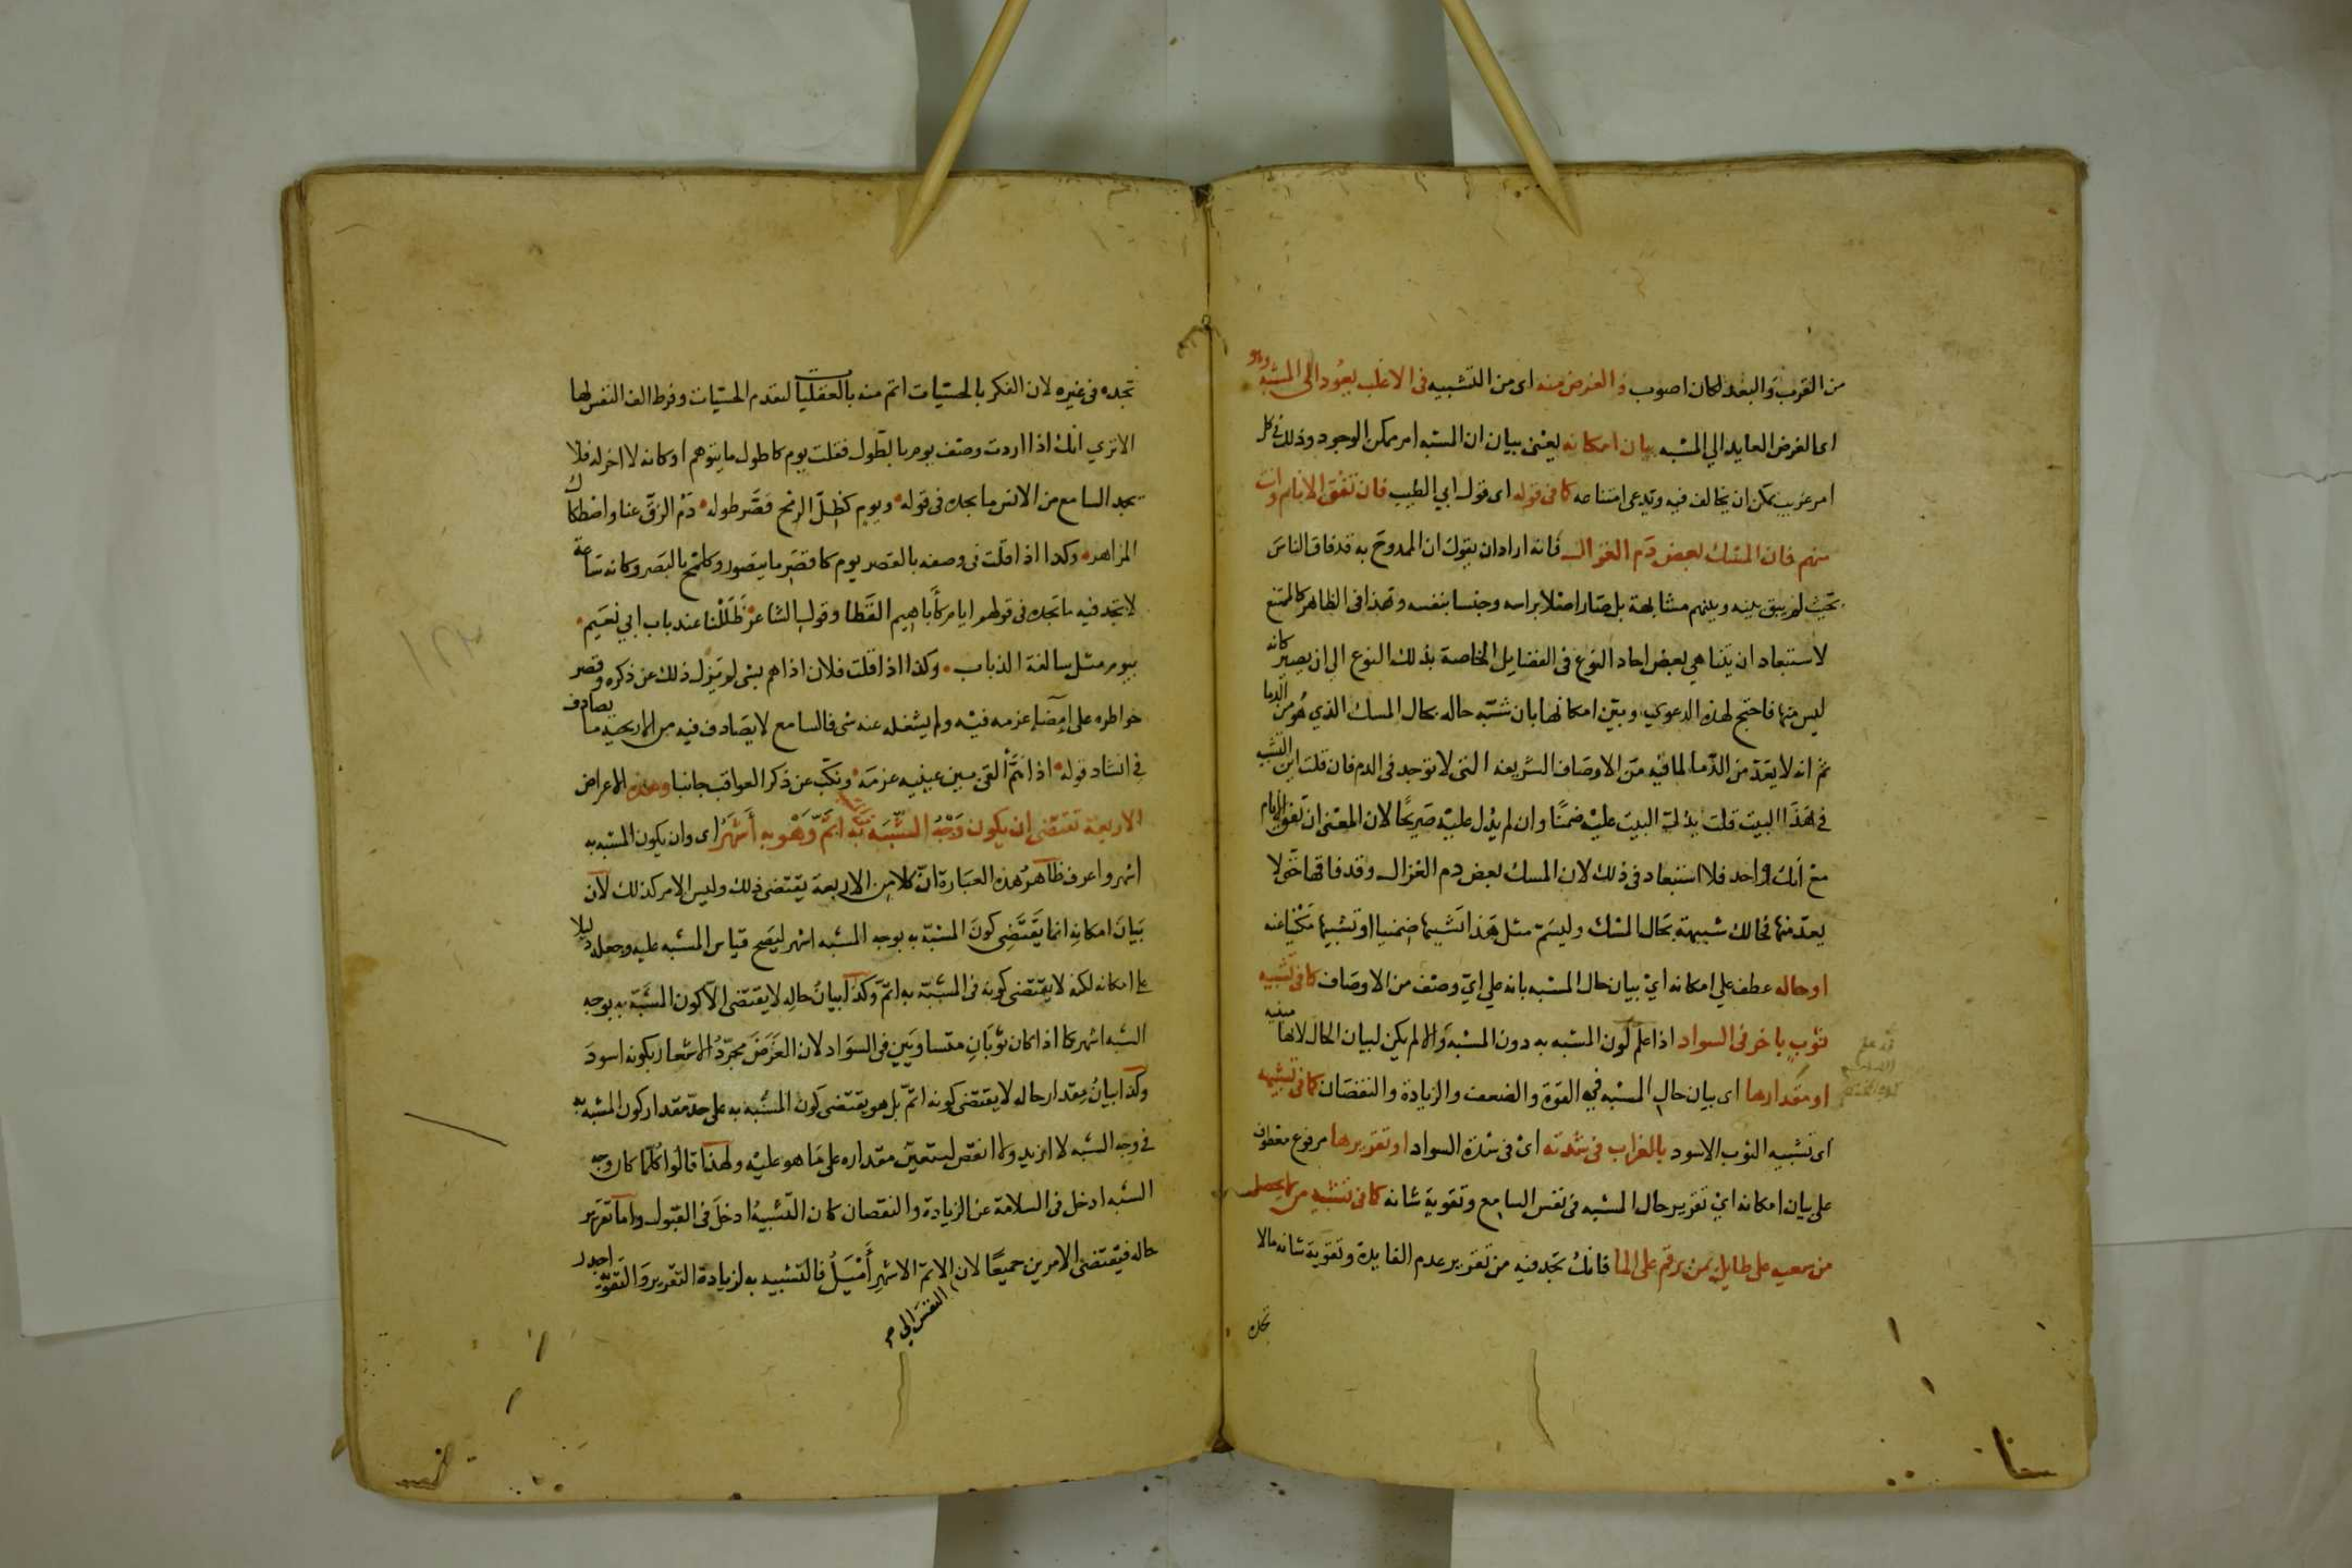 من القرب والبعد لكان اصوب والغرض منه اى من التشبيه فى الاغلب يعود الى المشبه وهو
اى الغرض العايد الي المشبه بيان امكانه يعنى بيان ان المشبه امر ممكن الوجود وذلك فى كل
امر غريب يمكن ان يخالف فيه ويدعى امتناعه كما فى قوله اى قول ابي الطيب فان تفق الانام وانت
منهم فان المسك بعض دم الغزال فانه اراد ان يقول ان الممدوح به قد فاق الناس
بحيث لم يبق بينه وبينهم مشابهة بل صار اصلا براسه وجنسا بنفسه وهذا فى الظاهر كالممتنع
لاستبعاد ان يتناهي بعض احاد النوع فى الفضايل الخاصة بذلك النوع الى ان يصير كانه
ليس منها فاحتج لهذه الدعوي وبين امكانها بان شبه حاله بحال المسك الذي هو من الدما
ثم انه لا يعد من الدما لما فيه من الاوصاف الشريفه التى لا توجد فى الدم فان قلت اين التشبيه
فى هذا البيت قلت يدل البيت عليه ضمنا وان لم يدل عليه صريحا لان المعنى ان تفق الانام
مع انك واحد فلا استبعاد فى ذلك لان المسك بعض دم الغزال وقد فاقها حتى لا
يعد منها فحالك شبيهة بحال المسك وليسم مثل هذا تشبيها ضمنيا او تشبيها مكنيا عنه
او حاله عطف علي امكانه اي بيان حال المشبه بانه علي اي وصف من الاوصاف كما فى تشبيه
ثوب باخر فى السواد اذا علم لون المشبه به دون المشبه والا لم يكن لبيان الحال لانها مبنيه
او مقدارها اى بيان حال المشبه في القوة والضعف والزيادة والنقصان كما فى تشبيهه
اى تشبيه الثوب الاسود بالغراب فى شدته اى فى شدة السواد او تقريرها مرفوع معطوف
على بيان امكانه اي تقرير حال المشبه فى نفس السامع وتقوية شانه كما فى تشبيه من لا يحصل
من سعيه على طايل بمن يرقم على الما فانك تجد فيه من تقرير عدم الفايدة وتقوية شانه ما لا
تجده
تجده فى غيره لان الفكر بالحسيات اتم منه بالعقليات لتقدم الحسيات وفرط الف النفس بها
الا تري انك اذا اردت وصف يوم بالطول فقلت يوم كاطول ما يتوهم او كانه لا اخر له فلا
يجد السامع من الانس ما يجده فى قوله ويوم كظل الرمح قصر طوله دم الزق عنا واصطكاك
المزاهر وكدا اذا قلت فى وصفه بالقصر يوم كاقصر ما يتصور وكلمح بالبصر وكانه ساعة
لا تجد فيه ما تجده فى قولهم ايام كأباهيم القطا وقول الشاعر ظللنا عند باب ابي نعيم
بيوم مثل سالفة الذباب وكذا اذا قلت فلان اذا هم بشى لم يزل ذلك عن ذكره وقصر
خواطره على امضاء عزمه فيه ولم يشغله عنه شى فالسامع لا يصادف فيه من الاريحيه ما يصادف
فى انشاد قوله اذا هم القى بين عينيه عزمه ونكب عن ذكر العواقب جانبا وهذه الاعراض
الاربعة تقتضى ان يكون وجه الشبه فى المشبه به اتم وهو به أشهر اى وان يكون المشبه به
اشهر واعرف ظاهر هذه العبارة ان كلا من الاربعة يقتضى ذلك وليس الامر كذلك لان
بيان امكانه انما يقتضى كون المشبه به بوجه الشبه اشهر ليصح قياس المشبه عليه وجعله دليلا
على امكانه لكنه لا يقتضى كونه فى المشبه به اتم وكذا بيان حاله لا يقتضى الا كون المشبه به بوجه
الشبه اشهر كما اذا كان ثوبان متساويين فى السواد لان الغرض مجرد الاشعار بكونه اسود
وكذا بيان مقدار حاله لا يقتضى كونه اتم بل هو يقتضى كون المشبه به على حد مقدار كون المشبه به
فى وجه الشبه لا ازيد ولا انقص ليتعين مقداره على ما هو عليه ولهذا قالوا كلما كان وجه
الشبه ادخل فى السلامة عن الزيادة والنقصان كان التشبيه ادخل فى القبول واما تقرير
حاله فيقتضى الامرين جميعا لان النفس الي الاتم الاشهر أميل فالتشبيه به لزيادة التقرير والتقوية اجدر